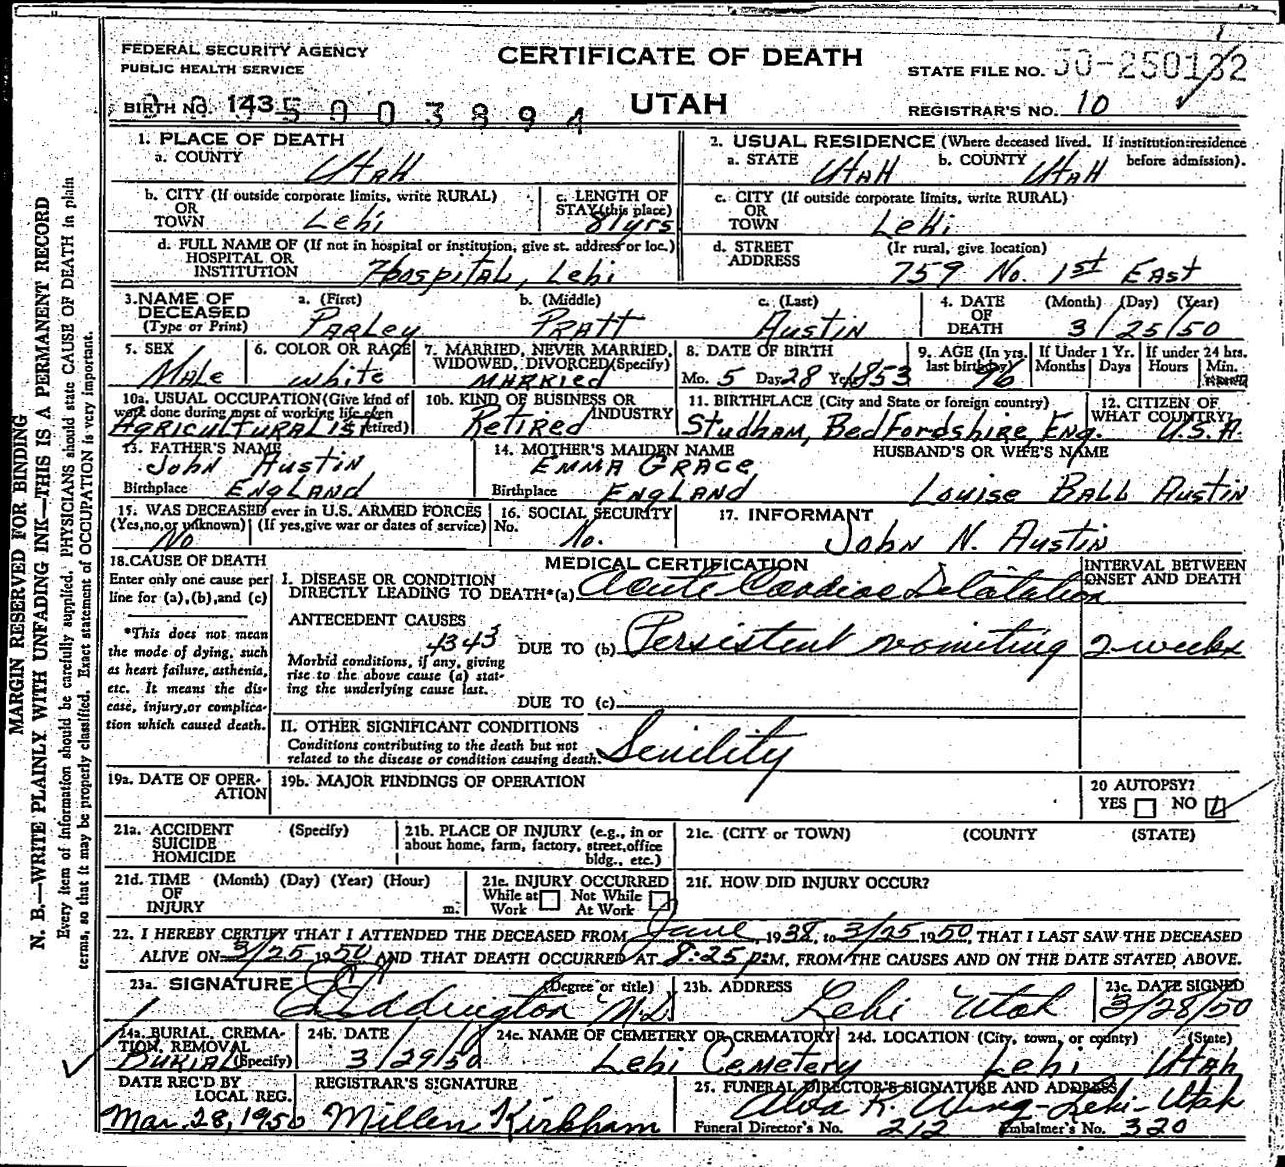 FEDERAL SECURITY AGENCY
PUBLIC HEALTH SERVICE
CERTIFICATE OF DEATH
UTAH
STATE FILE NO. 50-250132
BIRTH NO. 143
5003894
REGISTRAR'S NO. 10
MARGIN RESERVED FOR BINDING
N. B.—WRITE PLAINLY WITH UNFADING INK—THIS IS A PERMANENT RECORD
Every item of information should be carefully supplied. PHYSICIANS should state CAUSE OF DEATH in plain
terms, so that it may be properly classified. Exact statement of OCCUPATION is very important.
1. PLACE OF DEATH
a. COUNTY Utah
2. USUAL RESIDENCE (Where deceased lived. If institution:residence before admission).
a. STATE Utah b. COUNTY Utah
b. CITY (If outside corporate limits, write RURAL) OR TOWN Lehi
c. LENGTH OF STAY (this place) 81 yrs
c. CITY (If outside corporate limits, write RURAL) OR TOWN Lehi
d. FULL NAME OF (If not in hospital or institution, give st. address or loc.) HOSPITAL OR INSTITUTION Hospital, Lehi
d. STREET ADDRESS (Ir rural, give location) 759 No. 1st East
3. NAME OF DECEASED (Type or Print)
a. (First) Parley b. (Middle) Pratt c. (Last) Austin
4. DATE OF DEATH (Month) (Day) (Year) 3/25/50
5. SEX Male
6. COLOR OR RACE white
7. MARRIED, NEVER MARRIED, WIDOWED, DIVORCED(Specify) Married
8. DATE OF BIRTH Mo. 5 Day 28 Yr. 1853
9. AGE (In yrs. last birthday) 96
If Under 1 Yr. Months Days
If under 24 hrs. Hours Min.
10a. USUAL OCCUPATION(Give kind of work done during most of working life, even retired) Agriculturalist
10b. KIND OF BUSINESS OR INDUSTRY Retired
11. BIRTHPLACE (City and State or foreign country) Studham, Bedfordshire, Eng.
12. CITIZEN OF WHAT COUNTRY? U.S.A.
13. FATHER'S NAME John Austin,
Birthplace England
14. MOTHER'S MAIDEN NAME Emma Grace,
Birthplace England
HUSBAND'S OR WIFE'S NAME
Louise Ball Austin
15. WAS DECEASED ever in U.S. ARMED FORCES (Yes,no,or unknown) (If yes,give war or dates of service) No
16. SOCIAL SECURITY No. No.
17. INFORMANT John N. Austin
18. CAUSE OF DEATH
Enter only one cause per line for (a),(b),and (c)
*This does not mean the mode of dying, such as heart failure, asthenia, etc. It means the disease, injury,or complication which caused death.
MEDICAL CERTIFICATION
INTERVAL BETWEEN ONSET AND DEATH
I. DISEASE OR CONDITION DIRECTLY LEADING TO DEATH*(a) Acute Cardiac Dilatation
ANTECEDENT CAUSES
4343
Morbid conditions, if any, giving rise to the above cause (a) stating the underlying cause last.
DUE TO (b) Persistent vomiting 2 weeks
DUE TO (c)
II. OTHER SIGNIFICANT CONDITIONS
Conditions contributing to the death but not related to the disease or condition causing death. Senility
19a. DATE OF OPERATION
19b. MAJOR FINDINGS OF OPERATION
20 AUTOPSY?
YES NO
21a. ACCIDENT SUICIDE HOMICIDE (Specify)
21b. PLACE OF INJURY (e.g., in or about home, farm, factory, street,office bldg., etc.)
21c. (CITY or TOWN) (COUNTY) (STATE)
21d. TIME OF INJURY (Month) (Day) (Year) (Hour) m.
21e. INJURY OCCURRED
While at Work Not While At Work
21f. HOW DID INJURY OCCUR?
22. I HEREBY CERTIFY THAT I ATTENDED THE DECEASED FROM June, 1938, to 3/25 1950, THAT I LAST SAW THE DECEASED
ALIVE ON 3/25 1950 AND THAT DEATH OCCURRED AT 8:25 p.M, FROM THE CAUSES AND ON THE DATE STATED ABOVE.
23a. SIGNATURE (Degree or title) Eddington M.D.
23b. ADDRESS Lehi Utah
23c. DATE SIGNED 3/28/50
24a. BURIAL, CREMATION, REMOVAL (Specify) Burial
24b. DATE 3/29/50
24c. NAME OF CEMETERY OR CREMATORY Lehi Cemetery
24d. LOCATION (City, town, or county) (State) Lehi Utah
DATE REC'D BY LOCAL REG. Mar. 28, 1950
REGISTRAR'S SIGNATURE Millen Kirkham
25. FUNERAL DIRECTOR'S SIGNATURE AND ADDRESS
Alva R. Wing-Lehi-Utah
Funeral Director's No. 212 Embalmer's No. 320